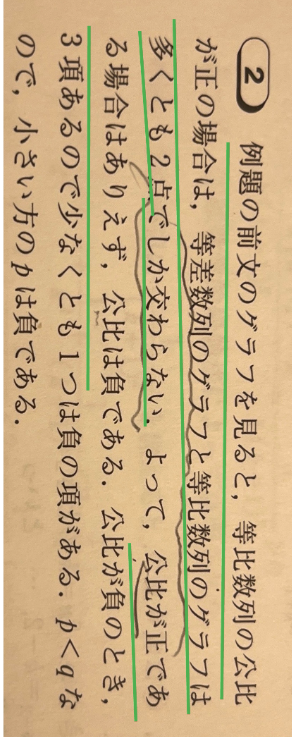 2 例題の前文のグラフを見ると，等比数列の公比
が正の場合は，等差数列のグラフと等比数列のグラフは
多くとも2点でしか交わらない．よって，公比が正であ
る場合はありえず，公比は負である．公比が負のとき，
3項あるので少なくとも1つは負の項がある．p<qな
ので，小さい方のpは負である．